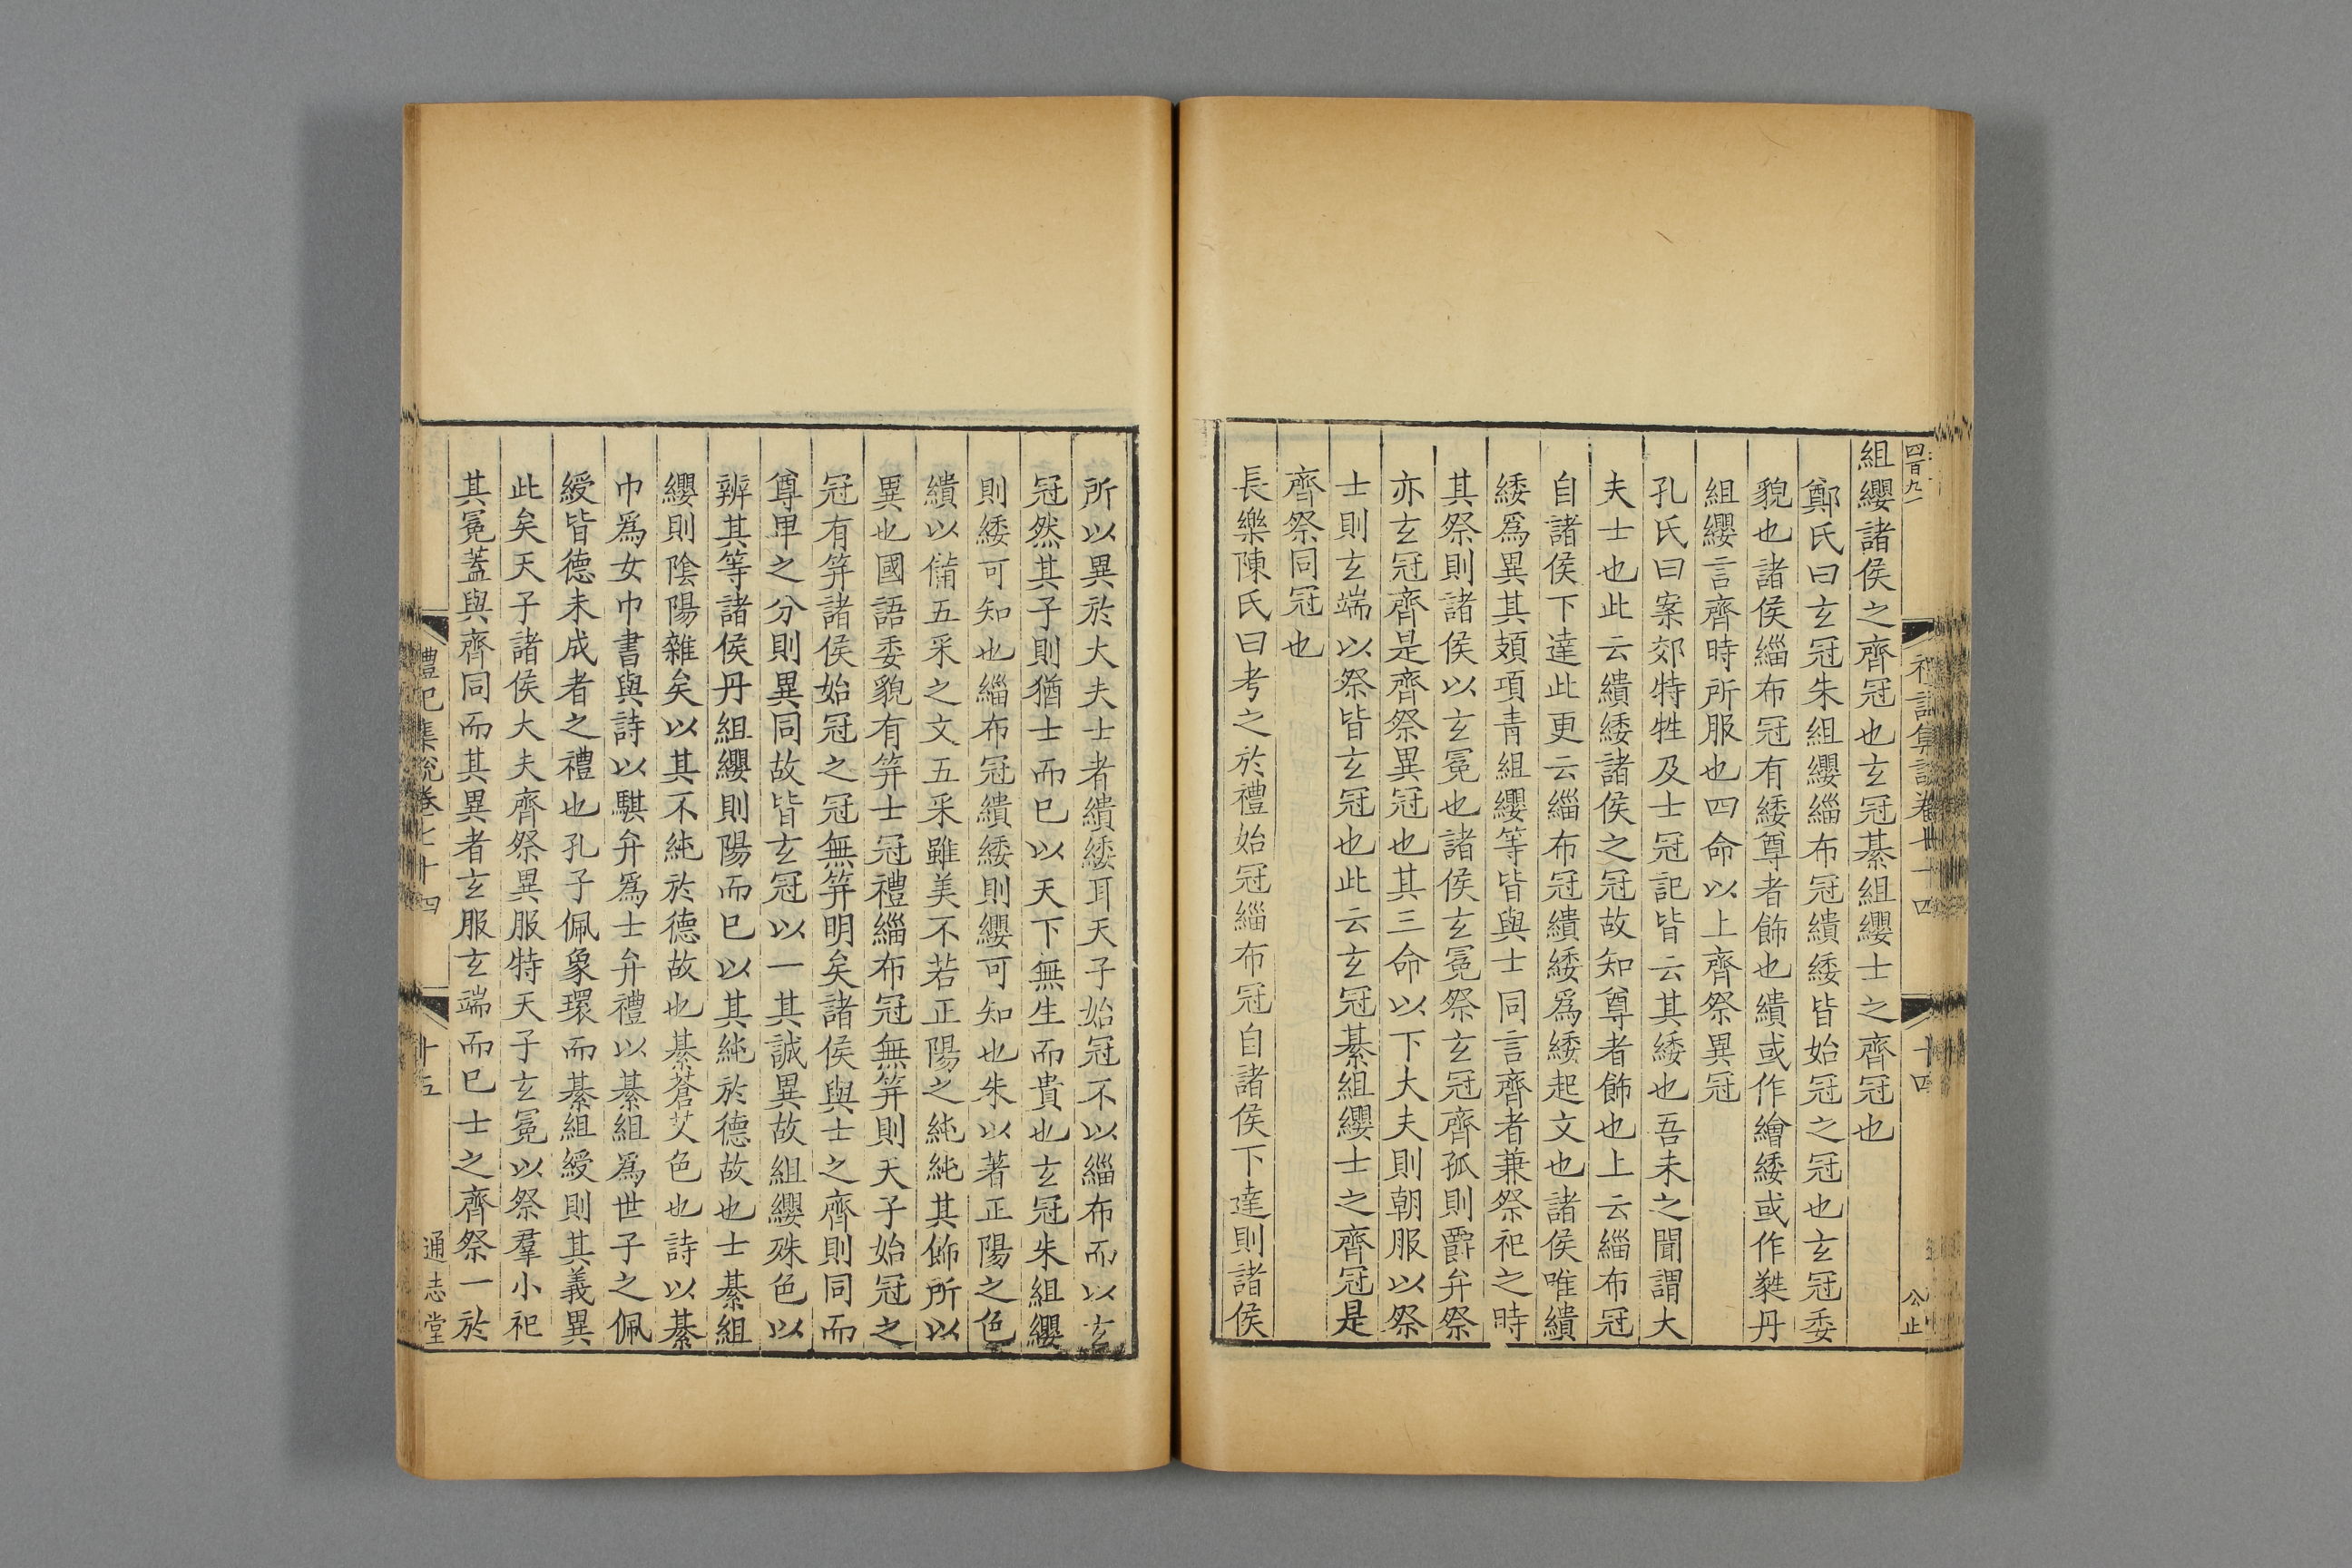 四百九一
禮記集說卷七十四
十四
公止
組纓諸侯之齊冠也玄冠綦組纓士之齊冠也
鄭氏曰玄冠朱組纓緇布冠繢緌皆始冠之冠也玄冠委
貌也諸侯緇布冠有緌尊者飾也繢或作繪緌或作蕤丹
組纓言齊時所服也四命以上齊祭異冠
孔氏曰案郊特牲及士冠記皆云其緌也吾未之聞謂大
夫士也此云繢緌諸侯之冠故知尊者飾也上云緇布冠
自諸侯下達此更云緇布冠繢緌爲緌起文也諸侯唯繢
緌爲異其頍項青組纓等皆與士同言齊者兼祭祀之時
其祭則諸侯以玄冕也諸侯玄冕祭玄冠齊孤則爵弁祭
亦玄冠齊是齊祭異冠也其三命以下大夫則朝服以祭
士則玄端以祭皆玄冠也此云玄冠綦組纓士之齊冠是
齊祭同冠也
長樂陳氏曰考之於禮始冠緇布冠自諸侯下達則諸侯
所以異於大夫士者繢緌耳天子始冠不以緇布而以玄
冠然其子則猶士而已以天下無生而貴也玄冠朱組纓
則緌可知也緇布冠繢緌則纓可知也朱以著正陽之色
繢以備五采之文五采雖美不若正陽之純純其飾所以
異也國語委貌有笄士冠禮緇布冠無笄則天子始冠之
冠有笄諸侯始冠之冠無笄明矣諸侯與士之齊則同而
尊卑之分則異同故皆玄冠以一其誠異故組纓殊色以
辨其等諸侯丹組纓則陽而已以其純於德故也士綦組
纓則陰陽雜矣以其不純於德故也綦蒼艾色也詩以綦
巾爲女巾書與詩以騏弁爲士弁禮以綦組爲世子之佩
綬皆德未成者之禮也孔子佩象環而綦組綬則其義異
此矣天子諸侯大夫齊祭異服特天子玄冕以祭羣小祀
其冕蓋與齊同而其異者玄服玄端而已士之齊祭一於
禮記集說卷七十四
十五
通志堂